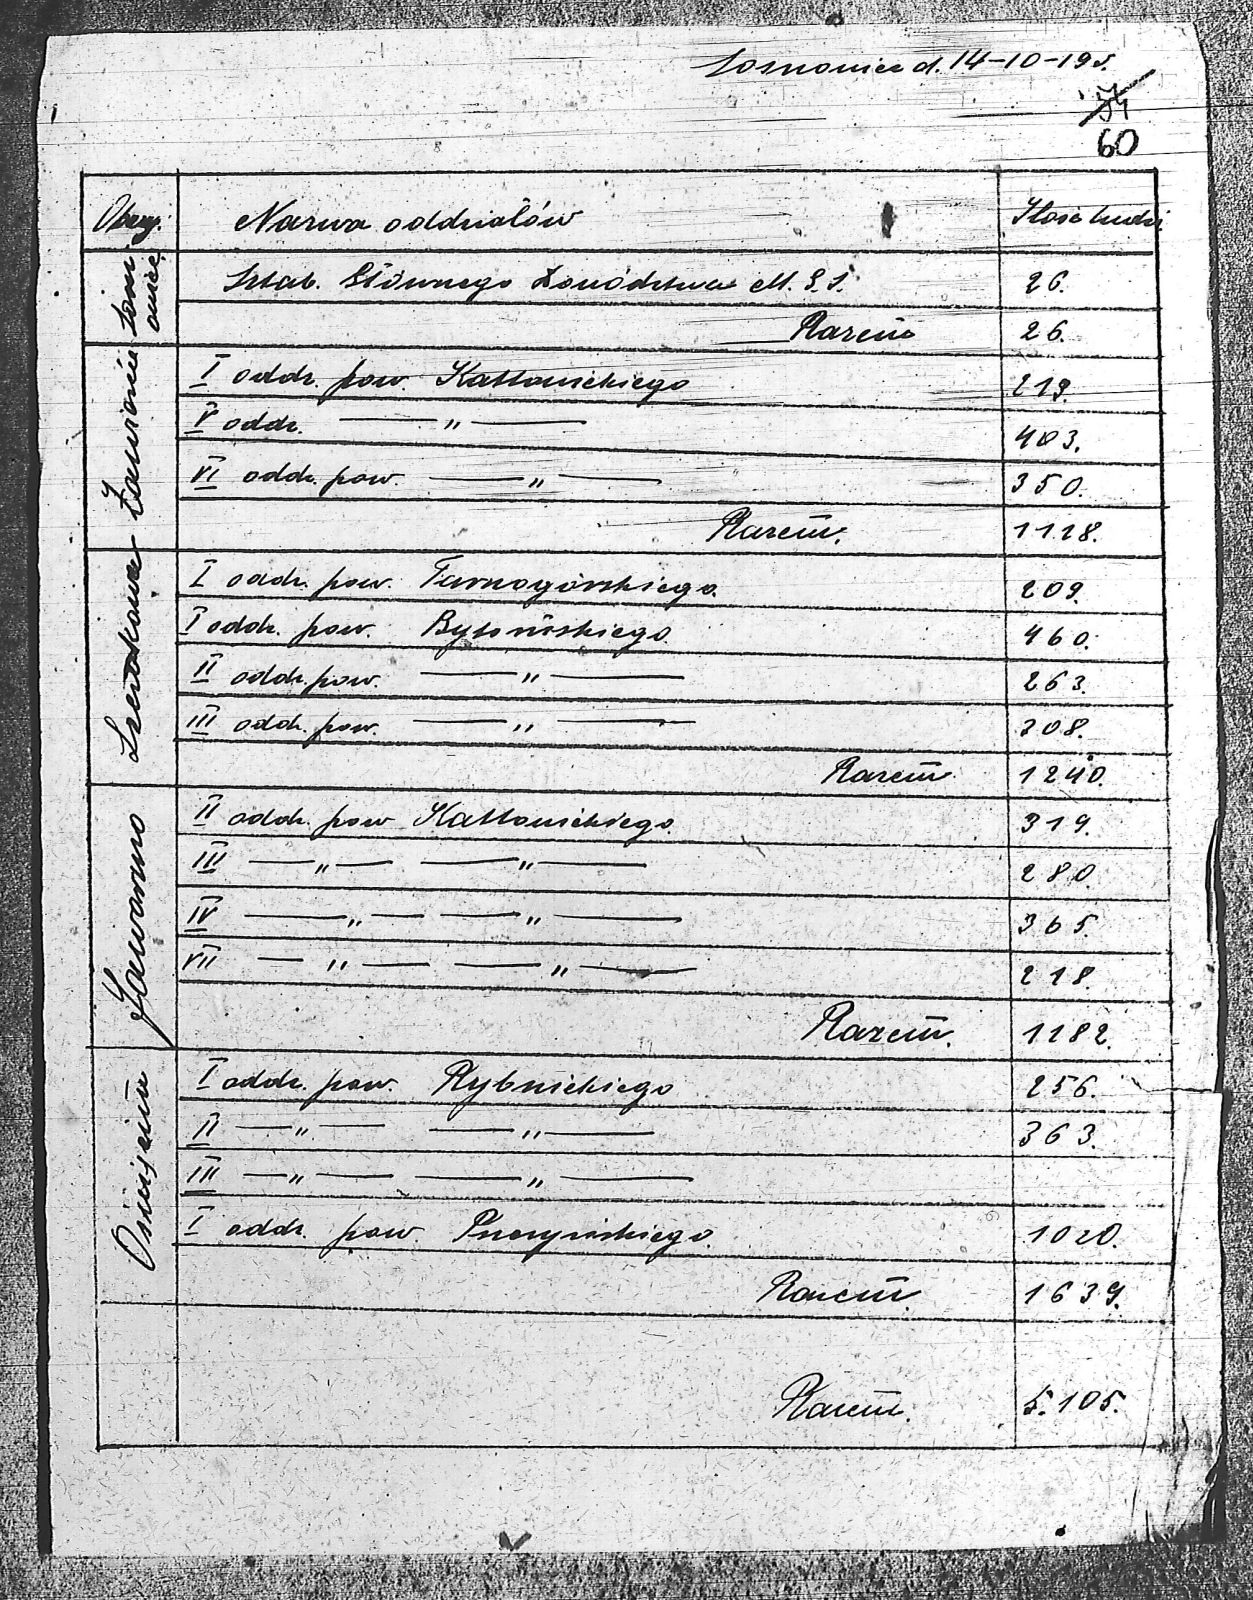 Sosnowice d. 14-10-19 r.
54
60
Obozy: Nazwa oddziałów Ilość ludzi
Sosnowice
Sztab. Głównego Dowództwa M. G. S. 26.
Razem 26.
Zawiercie
I oddz. pow. Kattowickiego 219.
V oddz. — " — 403.
VI oddz. pow. — " — 350.
Razem. 1118.
Szczakowa
I oddz. pow. Tarnogórskiego. 209.
I oddz. pow. Bytomskiego 460.
II oddz. pow. — " — 263.
III oddz. pow. — " — 308.
Razem 1240.
Jaworzno
II oddz. pow Kattowickiego 319.
III — " — — " — 280.
IV — " — — " — 365.
VII — " — — " — 218.
Razem. 1182.
Oświęcim
I oddz. pow. Rybnickiego 256.
II — " — — " — 363.
III — " — — " —
I oddz. pow. Pszczyńskiego. 1020.
Razem. 1639.
Razem. 5.105.